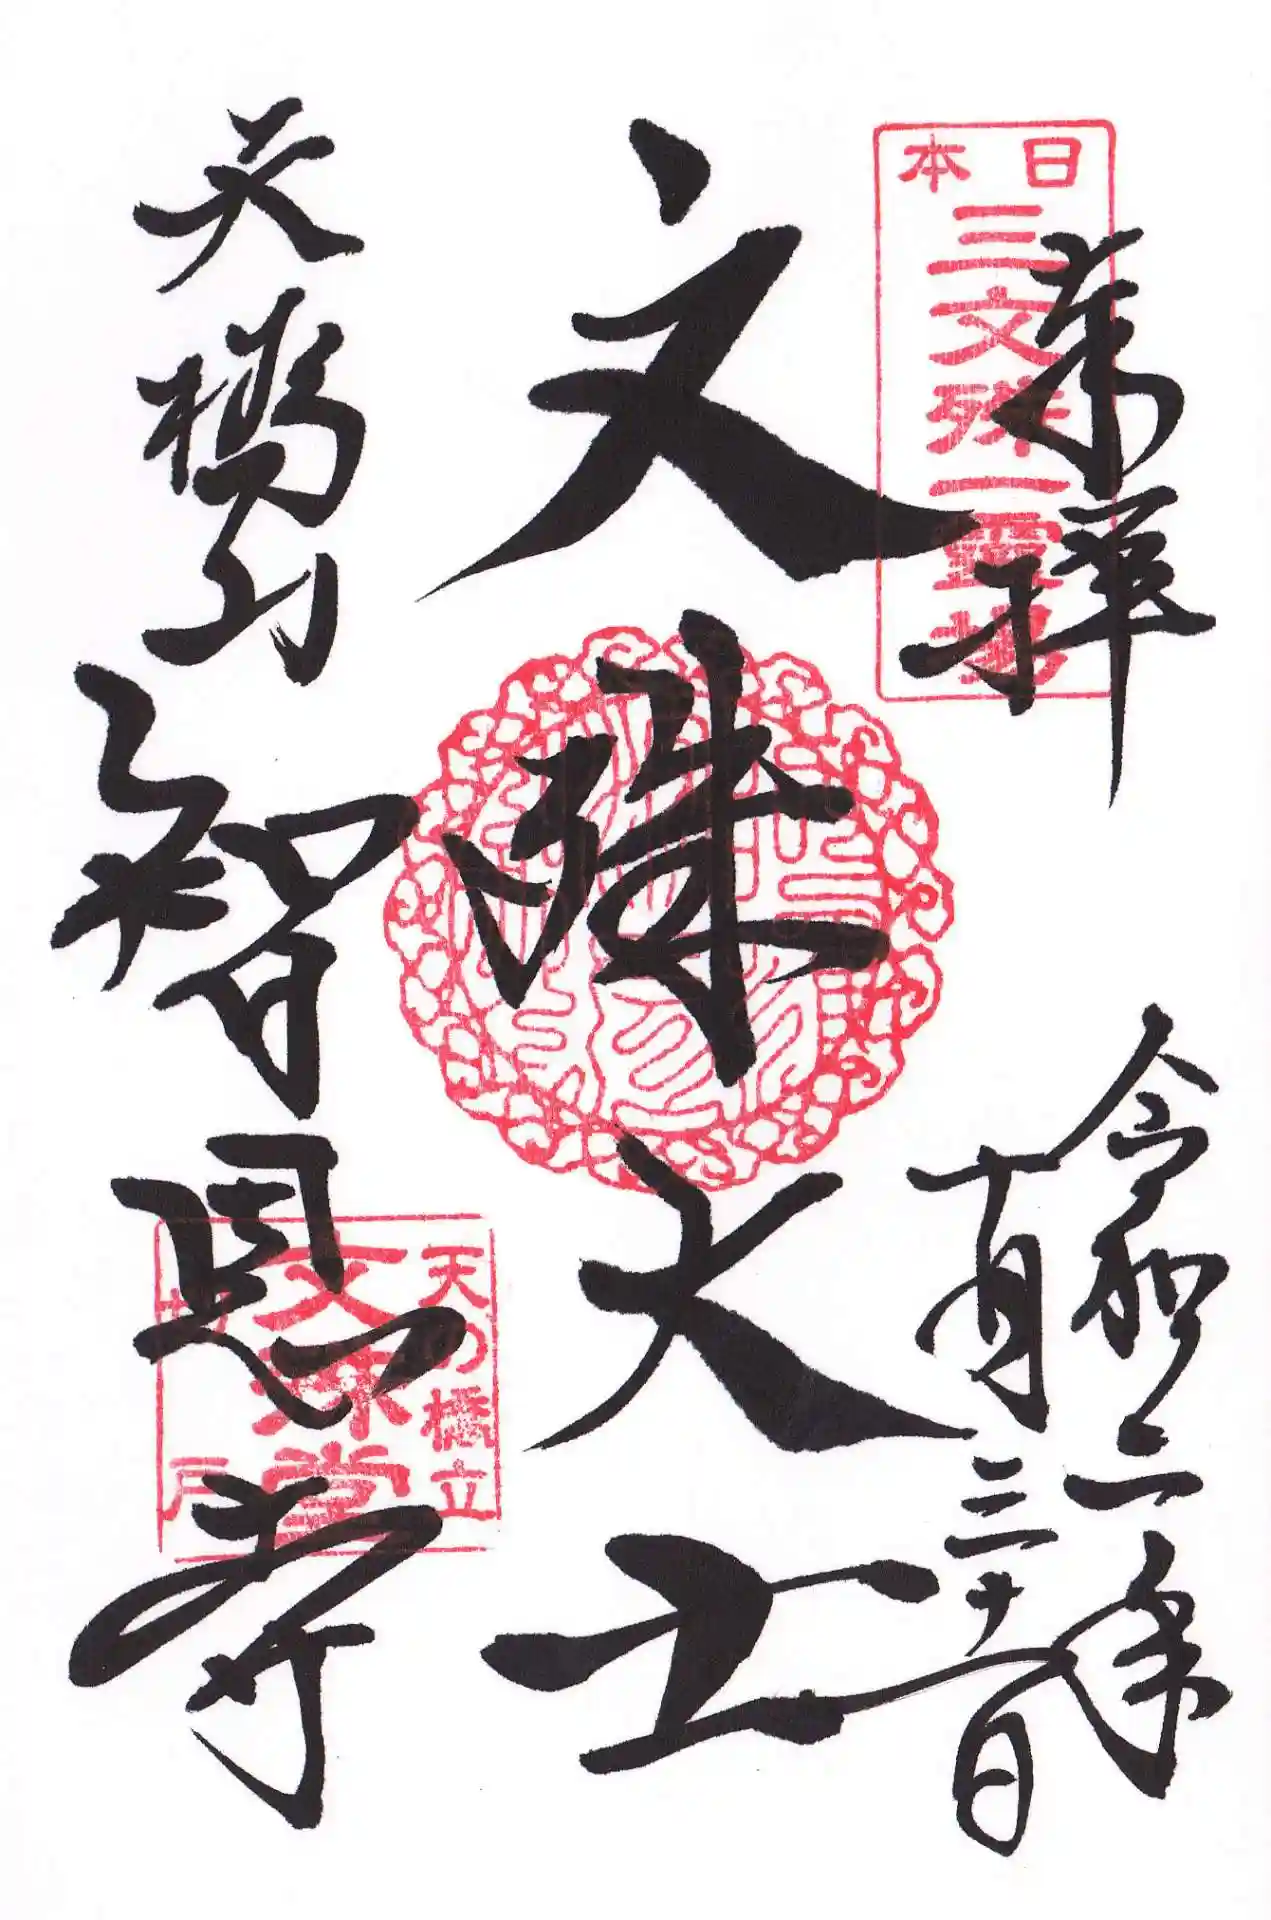 日本
三文殊一霊場
奉拝
令和二年
十月三十一日
文殊大士
天橋山
智恩寺
天の橋立
文珠堂
切戸